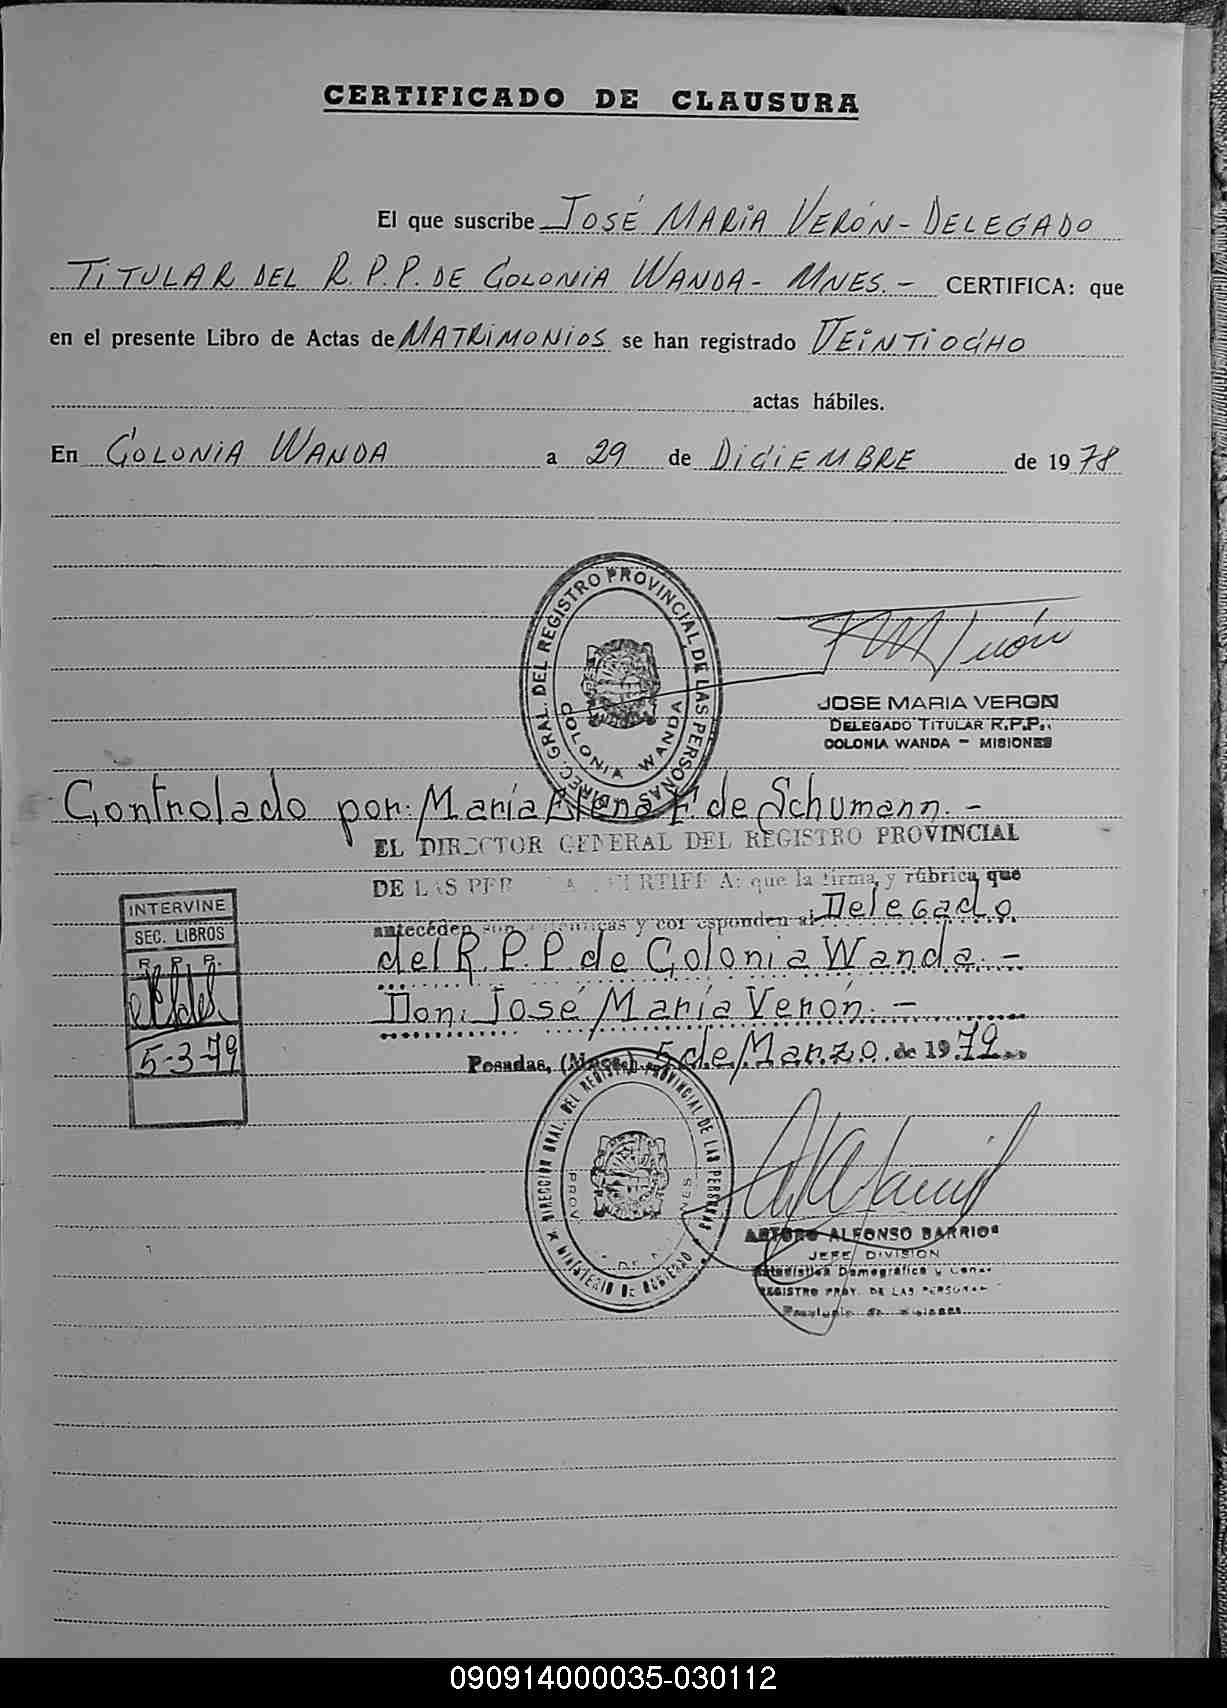 CERTIFICADO DE CLAUSURA
El que suscribe JOSÉ MARIA VERÓN - DELEGADO
TITULAR DEL R.P.P. DE COLONIA WANDA - MNES. - CERTIFICA: que
en el presente Libro de Actas de MATRIMONIOS se han registrado VEINTIOCHO
actas hábiles.
En COLONIA WANDA a 29 de DICIEMBRE de 1978
DIREC. GRAL. DEL REGISTRO PROVINCIAL DE LAS PERSONAS
COLONIA WANDA
JOSE MARIA VERON
DELEGADO TITULAR R.P.P.
COLONIA WANDA - MISIONES
Controlado por: María Elena F. de Schumann. -
EL DIRECTOR GENERAL DEL REGISTRO PROVINCIAL
DE LAS PER CERTIFICA: que la firma y rúbrica que
anteceden son auténticas y corresponden al Delegado
del R.P.P. de Colonia Wanda. -
Don: José María Verón. -
Posadas, (Mnes.) 5 de Marzo de 1979
INTERVINE
SEC. LIBROS
R. P. P.
5-3-79
DIRECCION GRAL. DEL REGISTRO PROVINCIAL DE LAS PERSONAS
MINISTERIO DE GOBIERNO
PROV. DE
ARTURO ALFONSO BARRIOS
JEFE DIVISION
Estadística Demográfica y
REGISTRO PROV. DE LAS PERSONAS
Provincia de Misiones
090914000035-030112